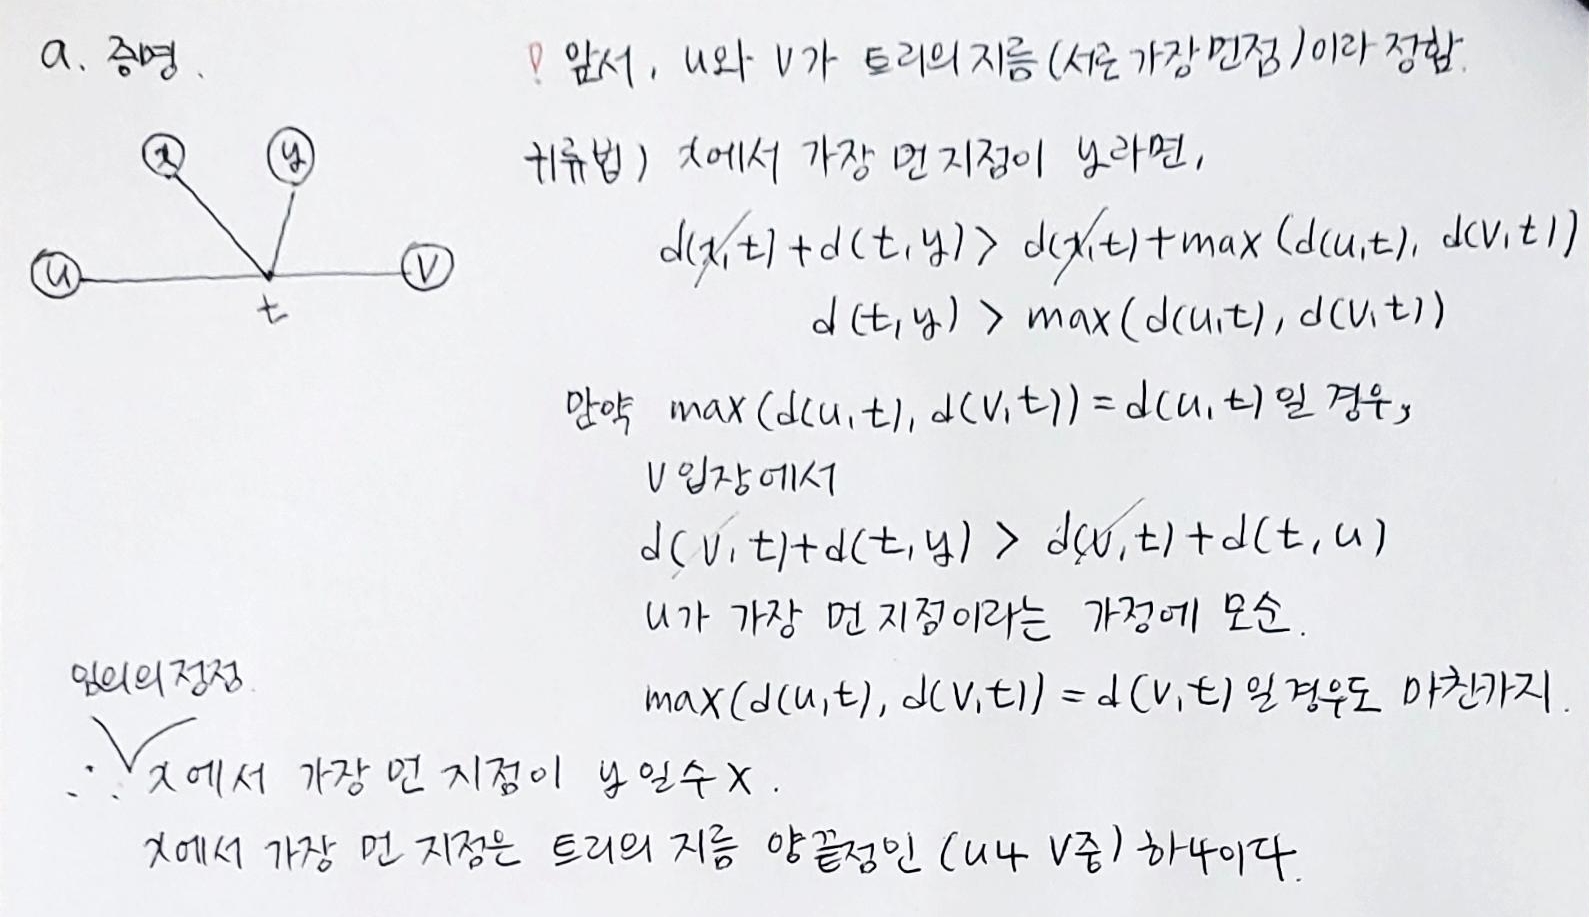 a. 증명.
! 앞서, u와 v가 트리의지름(서로가장먼점)이라 정함.
x
y
u
v
t
귀류법) x에서 가장 먼지점이 y라면,
d(x,t)+d(t,y)> d(x,t)+max(d(u,t), d(v,t))
d(t,y) > max(d(u,t), d(v,t))
만약 max(d(u,t), d(v,t))=d(u,t)일 경우,
v입장에서
d(v,t)+d(t,y) > d(v,t)+d(t,u)
u가 가장 먼지점이라는 가정에 모순.
max(d(u,t), d(v,t)) = d(v,t)일경우도 마찬가지.
임의의정점.
∴ x에서 가장 먼 지점이 y일수 x.
x에서 가장 먼 지점은 트리의 지름 양끝점인 (u나 v중) 하나이다.